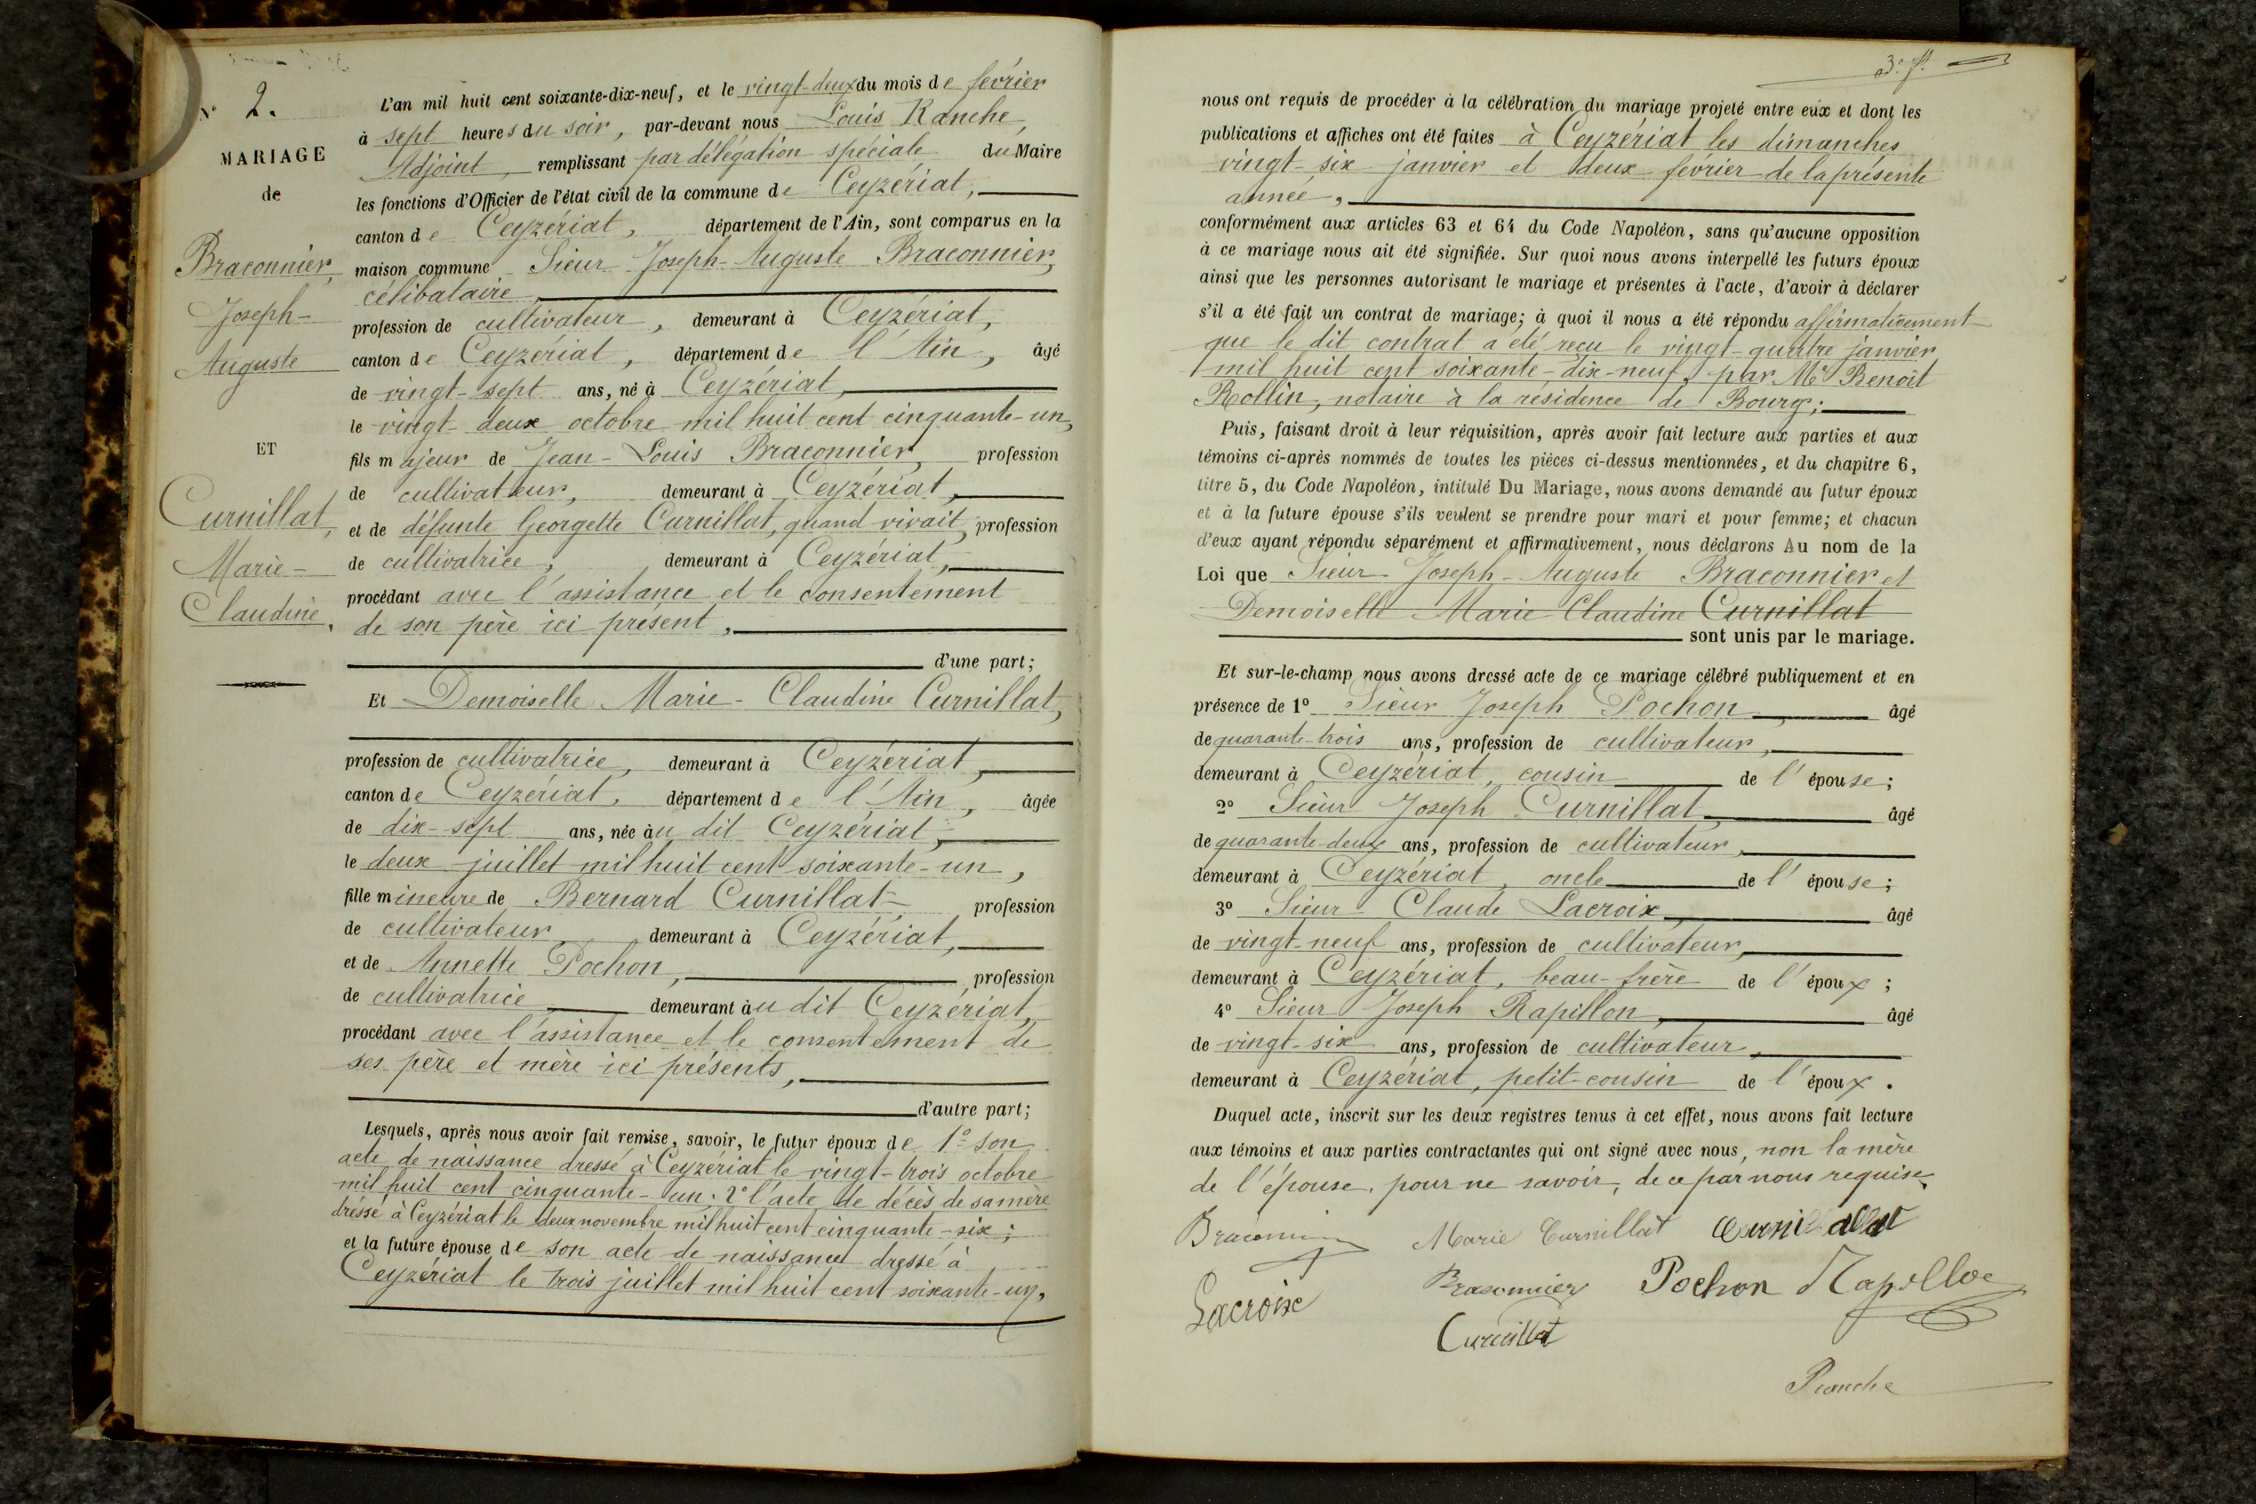 N° 2.
MARIAGE
de
Braconnier,
Joseph-
Auguste
ET
Curnillat,
Marie-
Claudine.
L'an mil huit cent soixante-dix-neuf, et le vingt-deux du mois de février
à sept heures du soir, par-devant nous Louis Ranche,
Adjoint, remplissant par délégation spéciale du Maire
les fonctions d'Officier de l'état civil de la commune de Ceyzériat,
canton de Ceyzériat, département de l'Ain, sont comparus en la
maison commune Sieur Joseph-Auguste Braconnier,
célibataire
profession de cultivateur, demeurant à Ceyzériat,
canton de Ceyzériat, département de l'Ain, âgé
de vingt-sept ans, né à Ceyzériat,
le vingt-deux octobre mil huit cent cinquante-un,
fils majeur de Jean-Louis Braconnier, profession
de cultivateur, demeurant à Ceyzériat,
et de défunte Georgette Curnillat, quand vivait, profession
de cultivatrice, demeurant à Ceyzériat,
procédant avec l'assistance et le consentement
de son père ici présent,
d'une part;
Et Demoiselle Marie-Claudine Curnillat,
profession de cultivatrice, demeurant à Ceyzériat,
canton de Ceyzériat, département de l'Ain, âgée
de dix-sept ans, née au dit Ceyzériat,
le deux juillet mil huit cent soixante-un,
fille mineure de Bernard Curnillat profession
de cultivateur demeurant à Ceyzériat,
et de Annette Pochon, profession
de cultivatrice demeurant au dit Ceyzériat,
procédant avec l'assistance et le consentement de
ses père et mère ici présents,
d'autre part;
Lesquels, après nous avoir fait remise, savoir, le futur époux de 1° son
acte de naissance dressé à Ceyzériat le vingt-trois octobre
mil huit cent cinquante-un; 2° l'acte de décès de sa mère
dressé à Ceyzériat le deux novembre mil huit cent cinquante-six;
et la future épouse de son acte de naissance dressé à
Ceyzériat le trois juillet mil huit cent soixante-un,
3e f.
nous ont requis de procéder à la célébration du mariage projeté entre eux et dont les
publications et affiches ont été faites à Ceyzériat les dimanches
vingt-six janvier et deux février de la présente
année,
conformément aux articles 63 et 64 du Code Napoléon, sans qu'aucune opposition
à ce mariage nous ait été signifiée. Sur quoi nous avons interpellé les futurs époux
ainsi que les personnes autorisant le mariage et présentes à l'acte, d'avoir à déclarer
s'il a été fait un contrat de mariage; à quoi il nous a été répondu affirmativement
que le dit contrat a été reçu le vingt-quatre janvier
mil huit cent soixante-dix-neuf, par Me Benoît
Rollin, notaire à la résidence de Bourg;
Puis, faisant droit à leur réquisition, après avoir fait lecture aux parties et aux
témoins ci-après nommés de toutes les pièces ci-dessus mentionnées, et du chapitre 6,
titre 5, du Code Napoléon, intitulé Du Mariage, nous avons demandé au futur époux
et à la future épouse s'ils veulent se prendre pour mari et pour femme; et chacun
d'eux ayant répondu séparément et affirmativement, nous déclarons Au nom de la
Loi que Sieur Joseph-Auguste Braconnier et
Demoiselle Marie Claudine Curnillat
sont unis par le mariage.
Et sur-le-champ nous avons dressé acte de ce mariage célébré publiquement et en
présence de 1° Sieur Joseph Pochon âgé
de quarante-trois ans, profession de cultivateur,
demeurant à Ceyzériat, cousin de l'épouse;
2° Sieur Joseph Curnillat, âgé
de quarante-deux ans, profession de cultivateur,
demeurant à Ceyzériat, oncle de l'épouse;
3° Sieur Claude Lacroix, âgé
de vingt-neuf ans, profession de cultivateur,
demeurant à Ceyzériat, beau-frère de l'époux;
4° Sieur Joseph Rapillon, âgé
de vingt-six ans, profession de cultivateur,
demeurant à Ceyzériat, petit-cousin de l'époux.
Duquel acte, inscrit sur les deux registres tenus à cet effet, nous avons fait lecture
aux témoins et aux parties contractantes qui ont signé avec nous, non la mère
de l'épouse, pour ne savoir, de ce par nous requise.
Braconnier Marie Curnillat Curnillat
Lacroix Braconnier Pochon Rapillon
Curnillat
Ranche